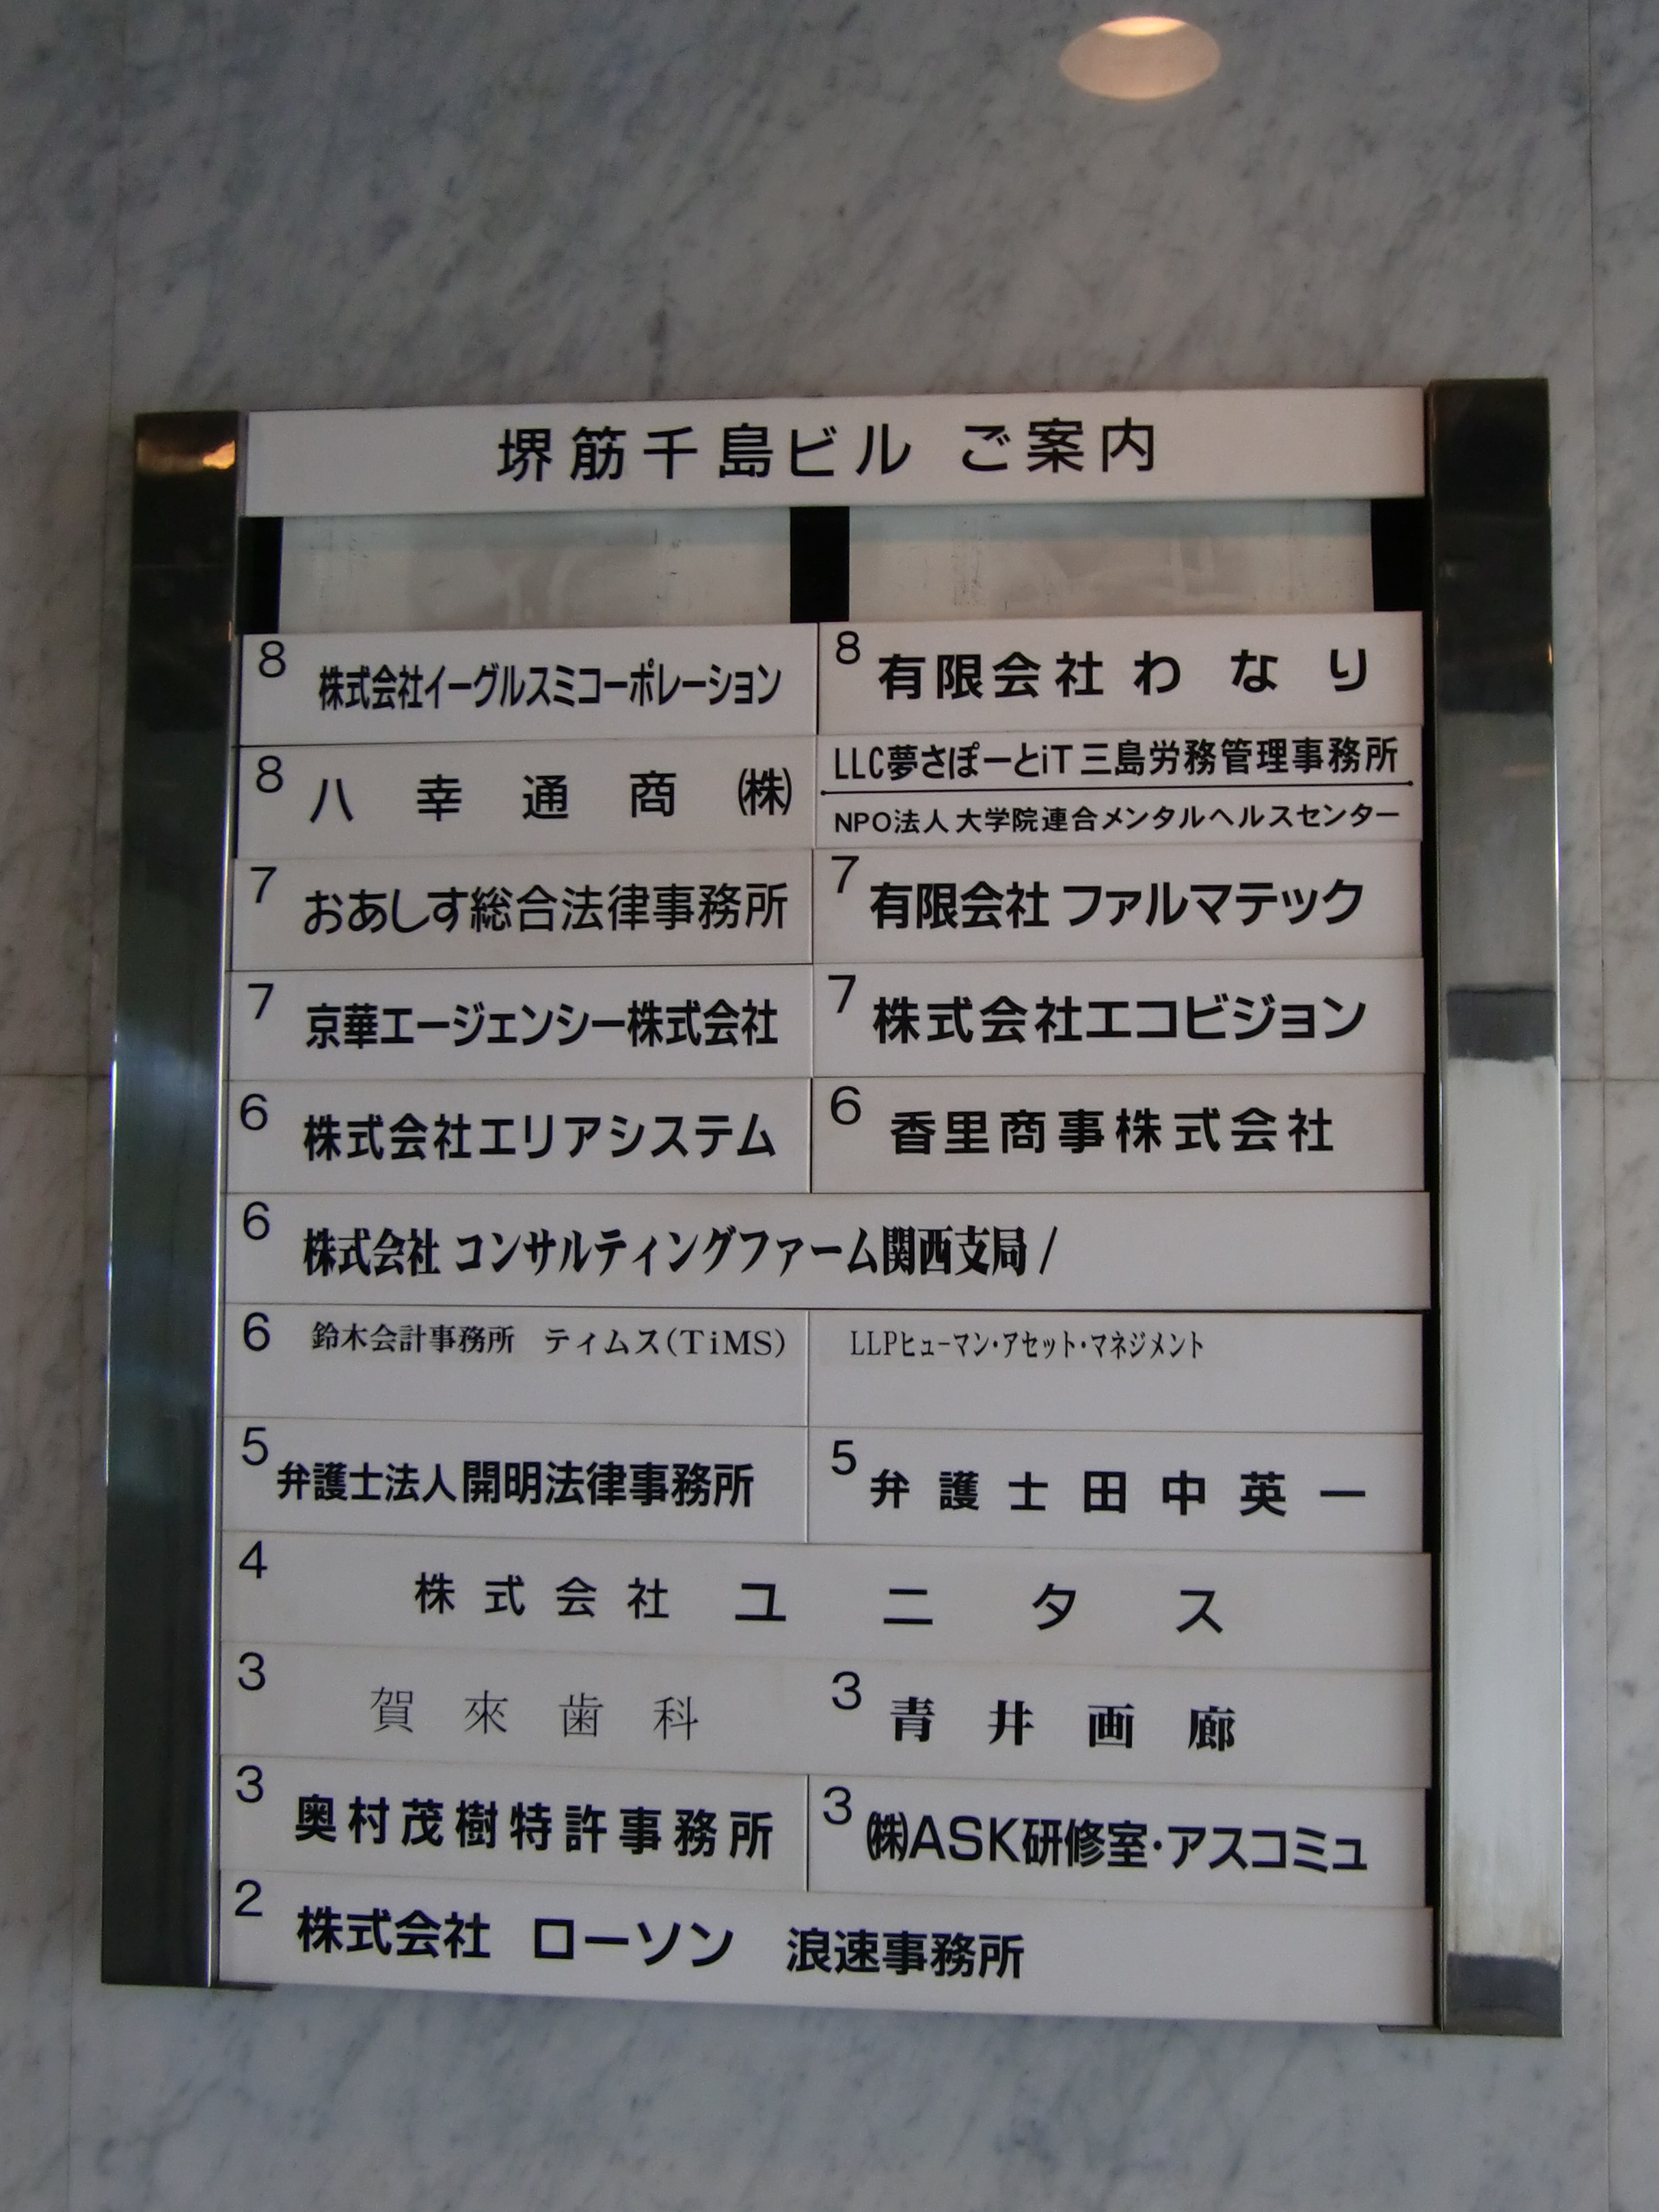 堺筋千島ビル ご案内
8 株式会社イーグルスミコーポレーション
8 有限会社 わなり
8 八幸通商 ㈱
LLC夢さぽーとiT 三島労務管理事務所
NPO法人 大学院連合メンタルヘルスセンター
7 おあしす総合法律事務所
7 有限会社 ファルマテック
7 京華エージェンシー株式会社
7 株式会社エコビジョン
6 株式会社エリアシステム
6 香里商事株式会社
6 株式会社 コンサルティングファーム関西支局 /
6 鈴木会計事務所 ティムス(TiMS)
LLPヒューマン・アセット・マネジメント
5 弁護士法人開明法律事務所
5 弁護士田中英一
4 株式会社 ユニタス
3 賀來歯科
3 青井画廊
3 奥村茂樹特許事務所
3 ㈱ASK研修室・アスコミュ
2 株式会社 ローソン 浪速事務所